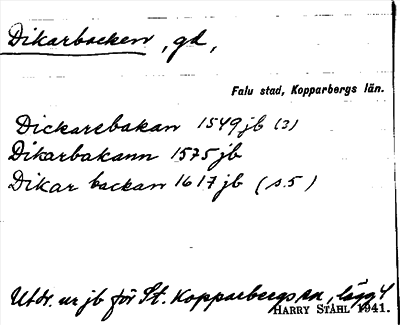 Dikarbacken, gd,
Falu stad, Kopparbergs län.
Dickarebakan 1549 jb (3)
Dikarbakann 1575 jb
Dikar backan 1617 jb (s.5)
Utdr. ur jb för St. Kopparbergs sn, lägg 4
HARRY STÅHL 1941.